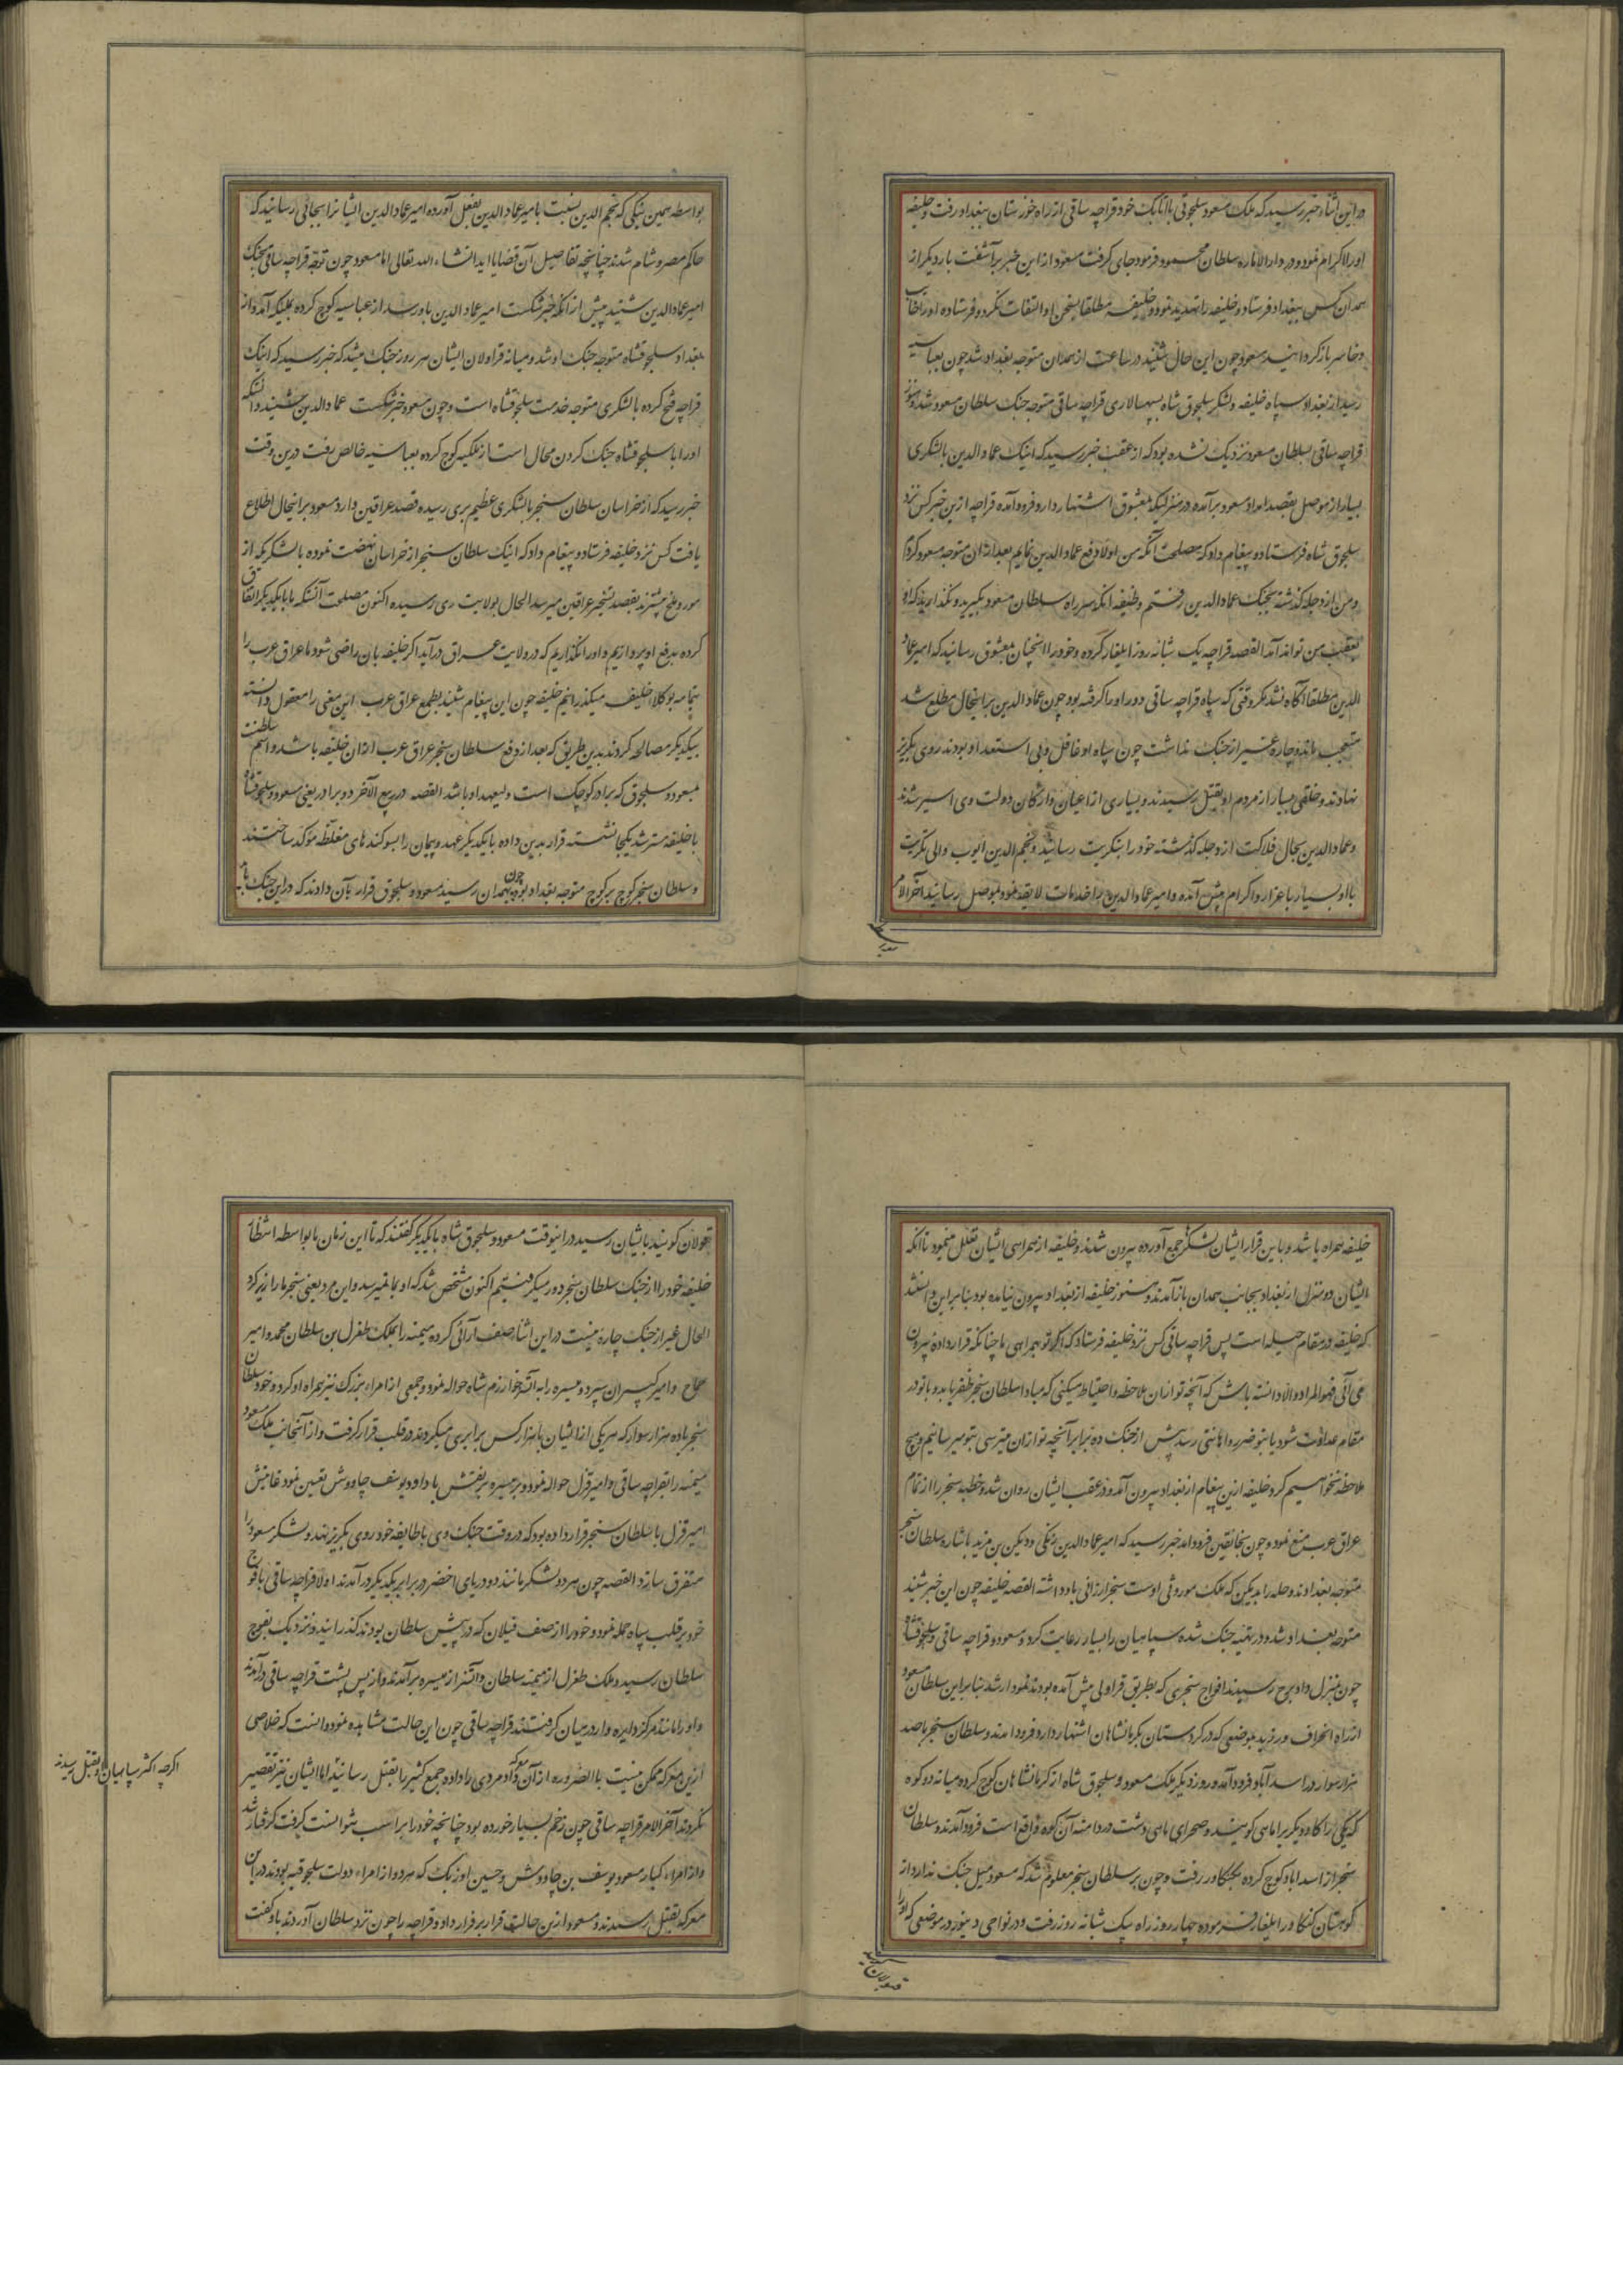 در این اثنا خبر رسید که ملک مسعود سلجوقی با اتابک خود قراچه ساقی از راه خوزستان ببغداد رفت و خلیفه
او را اکرام نمود و در دار الاماره سلطان محمود فرمود جای گرفت مسعود از این خبر برآشفت بار دیگر از
همدان کس ببغداد فرستاد و خلیفه را تهدید نمود و خلیفه مطلقا بسخن او التفات نکرد و فرستاده او را خایب
و خاسر باز گردانید مسعود چون این حال شنید در ساعت از همدان متوجه بغداد شد چون بعباسیه
رسید از بغداد سپاه خلیفه و لشکر سلجوق شاه بسپهسالاری قراچه ساقی متوجه جنک سلطان مسعود شد و هنوز
قراچه ساقی بسلطان مسعود نزدیک نشده بود که از عقب خبر رسید که اینک عماد الدین بالشکری
بسیار از موصل بقصد امداد مسعود برآمده در منزلیکه بمعشوق اشتهار دارد فرود آمده قراچه ازین خبر کس نزد
سلجوق شاه فرستاد و پیغام داد که مصلحت آنکه من اولا دفع عماد الدین نمایم بعد از آن متوجه مسعود کردم
و من از دجله کذشته بجنک عماد الدین رفتم وظیفه آنکه سر راه سلطان مسعود بکیرید و نکذارید که او
بعقب من تواند آمد القصه قراچه یک شبانه روز ایلغار کرده و خود را انچنان بمعشوق رسانید که امیر عماد
الدین مطلقا آکاه نشد مکر وقتی که سپاه قراچه ساقی دور او را کرفته بود چون عماد الدین بر اینحال مطلع شد
متعجب ماند و چاره غیر از جنک نداشت چون سپاه او غافل و بی استعداد بودند روی بکریز
نهادند و خلقی بسیار از مردم او بقتل رسیدند و بسیاری از اعیان و ارکان دولت وی اسیر شدند
و عماد الدین بحال فلاکت از دجله کذشته خود را بتکریت رسانید و نجم الدین ایوب والی تکریت
با او بسیار باعزاز و اکرام پیش آمده و امیر عماد الدین را خدمات لایقه نمود بموصل رسانید آخر الامر
بواسطه همین نیکی که نجم الدین نسبت بامیر عماد الدین بفعل آورده امیر عماد الدین ایشانرا بجائی رسانید که
حاکم مصر و شام شدند چنانچه تفاصیل آن قضایا اید انشاء الله تعالی اما مسعود چون توجه قراچه ساقی بجنک
امیر عماد الدین شنید پیش از انکه خبر شکست امیر عماد الدین باو رسد از عباسیه کوچ کرده بملکیه آمد و از
بغداد سلجوقشاه متوجه جنک او شد و میانه قراولان ایشان هر روز جنک میشد که خبر رسید که اینک
قراچه فتح کرده بالشکری متوجه خدمت سلجوقشاه است و چون مسعود خبر شکست عماد الدین شنید و آنکه
او را با سلجوقشاه جنک کردن محال است از ملکیه کوچ کرده بعباسیه خالص رفت درین وقت
خبر رسید که از خراسان سلطان سنجر بالشکری عظیم بری رسیده قصد عراقین دارد مسعود بر اینحال اطلاع
یافت کس نزد خلیفه فرستاد و پیغام داد که اینک سلطان سنجر از خراسان نهضت نموده بالشکریکه از
مور و ملخ بیشترند بقصد تسخیر عراقین میرسد الحال بولایت ری رسیده اکنون مصلحت آنستکه ما با یکدیکر اتفاق
کرده بدفع او پردازیم و او را نکذاریم که در ولایت عراق درآید اکر خلیفه بان راضی شود ما عراق عرب را
بتمامه بوکلاء خلیفه میکذرانیم خلیفه چون این پیغام شنید بطمع عراق عرب این معنی را معقول دانسته
بیکدیکر مصالحه کردند بدین طریق که بعد از دفع سلطان سنجر عراق عرب از ان خلیفه باشد و اسم سلطنت
بمسعود و سلجوق که برادر کوچک است ولیعهد او باشد القصه در ربیع الآخر دو برادر یعنی مسعود و سلجوقشاه
با خلیفه مسترشد یکجا نشسته قرار بدین داده با یکدیکر عهد و پیمان را بسوکندهای مغلظه مؤکد ساختند
و سلطان سنجر کوچ بر کوچ متوجه بغداد بود چون بهمدان رسید مسعود و سلجوق قرار بآن دادند که در این جنک باید
خلیفه همراه باشد و باین قرار ایشان لشکرها جمع آورده بیرون شدند و خلیفه از همراهی ایشان تعلل مینمود تا آنکه
ایشان دو منزل از بغداد بجانب همدان باز آمدند و هنوز خلیفه از بغداد بیرون نیامده بود بنابر این دانستند
که خلیفه در مقام حیله است پس قراچه ساقی کس نزد خلیفه فرستاد که اکر تو بهمراهی ما چنانکه قرار داده بیرون
می آئی فهو المراد و الا دانسته باش که آنچه تو از ان ملاحظه و احتیاط میکنی که مبادا سلطان سنجر ظفر یابد و با تو در
مقام عداوت شود یا بتو ضرر و اهانتی رسد پیش از جنک ده برابر آنچه تو از ان میترسی بتو میرسانیم و هیچ
ملاحظه نخواهیم کرد خلیفه ازین پیغام از بغداد بیرون آمد و در عقب ایشان روان شد و خطبه سنجر را از تمام
عراق عرب منع نمود و چون بخانقین فرود امد خبر رسید که امیر عماد الدین زنکی و دبیس بن مزید باشاره سلطان سنجر
متوجه بغدادند و حله را بدبیس که ملک موروثی اوست سنجر ارزانی باو داشته القصه خلیفه چون این خبر شنید
متوجه بغداد شد و در تهیه جنک شده سپاهیان را بسیار رعایت کرد و مسعود و قراچه ساقی و سلجوقشاه
چون بمنزل داد برج رسیدند افواج سنجری که بطریق قراولی پیش آمده بودند نمودار شد بنابر این سلطان مسعود
از راه انحراف ورزید بموضعی که در کردستان بکرمانشاهان اشتهار دارد فرود امدند و سلطان سنجر با صد
هزار سوار در اسدآباد فرود آمده روز دیکر ملک مسعود و سلجوق شاه از کرمانشاهان کوچ کرده میانه دو کوه
که یکی را کاو و دیکریرا ماهی کویند و صحرای ماهی دشت در دامنه آن کوه واقع است فرود آمدند و سلطان
سنجر از اسداباد کوچ کرده بکنکاور رفت و چون بر سلطان سنجر معلوم شد که مسعود میل جنک ندارد از
کوهستان کنکاور ایلغار فرموده چهار روز راه یک شبانه روز رفت و در نواحی دینور در موضعی که او را
قولان کویند بایشان رسید در اینوقت مسعود و سلجوق شاه با یکدیکر کفتند که تا این زمان ما بواسطه انتظار
خلیفه خود را از جنک سلطان سنجر دور میکرفتیم اکنون مشخص شد که او بما نمیرسد و این مرد یعنی سنجر ما را زیر کرد
الحال غیر از جنک چاره نیست در این اثنا صف آرائی کرده میمنه را بملک طغرل بن سلطان محمد و امیر
قماج و امیر امیران سپرد و میسره را به اتسز خوارزم شاه حواله نمود و جمعی از امراء بزرک نیز همراه او کرد و خود سلطان
سنجر با ده هزار سوار که هر یکی از ایشان با هزار کس برابری میکردند در قلب قرار کرفت و از آنجانب ملک مسعود
میمنه را بقراچه ساقی و امیر قزل حواله نمود و بر میسره برنقش باداد و یوسف چاووش تعیین نمود غایتش
امیر قزل با سلطان سنجر قرار داده بود که در وقت جنک وی با طایفه خود روی بکریز نهد و لشکر مسعود را
متفرق سازد القصه چون هر دو لشکر مانند دو دریای اخضر در برابر یکدیکر درآمدند اولا قراچه ساقی با فوج
خود بر قلب سپاه حمله نمود و خود را از صف فیلان که در پیش سلطان بودند کذرانید و نزدیک بفوج
سلطان رسید و ملک طغرل از میمنه سلطان و اتسز از میسره برآمدند و از پس پشت قراچه ساقی درآمدند
و او را مانند مرکز دایره وار در میان کرفتند قراچه ساقی چون این حالت مشاهده نمود دانست که خلاصی
ازین معرکه ممکن نیست بالضروره از آن معرکه داد مردی را داده جمع کثیر را بقتل رسانید اما ایشان نیز تقصیر
نکردند آخر الامر قراچه ساقی چون زخم بسیار خورده بود چنانچه خود را بر اسب نتوانست کرفت کرفتار شد
و از امراء کبار مسعود یوسف بن چاووش و حسین اوزبک که هر دو از امراء دولت سلجوقیه بودند در ان
معرکه بقتل رسیدند و مسعود ازین حالت قرار بر فرار داد و قراچه را چون نزد سلطان آوردند باو کفت
اکرچه اکثر سپاهیان بقتل رسیدند